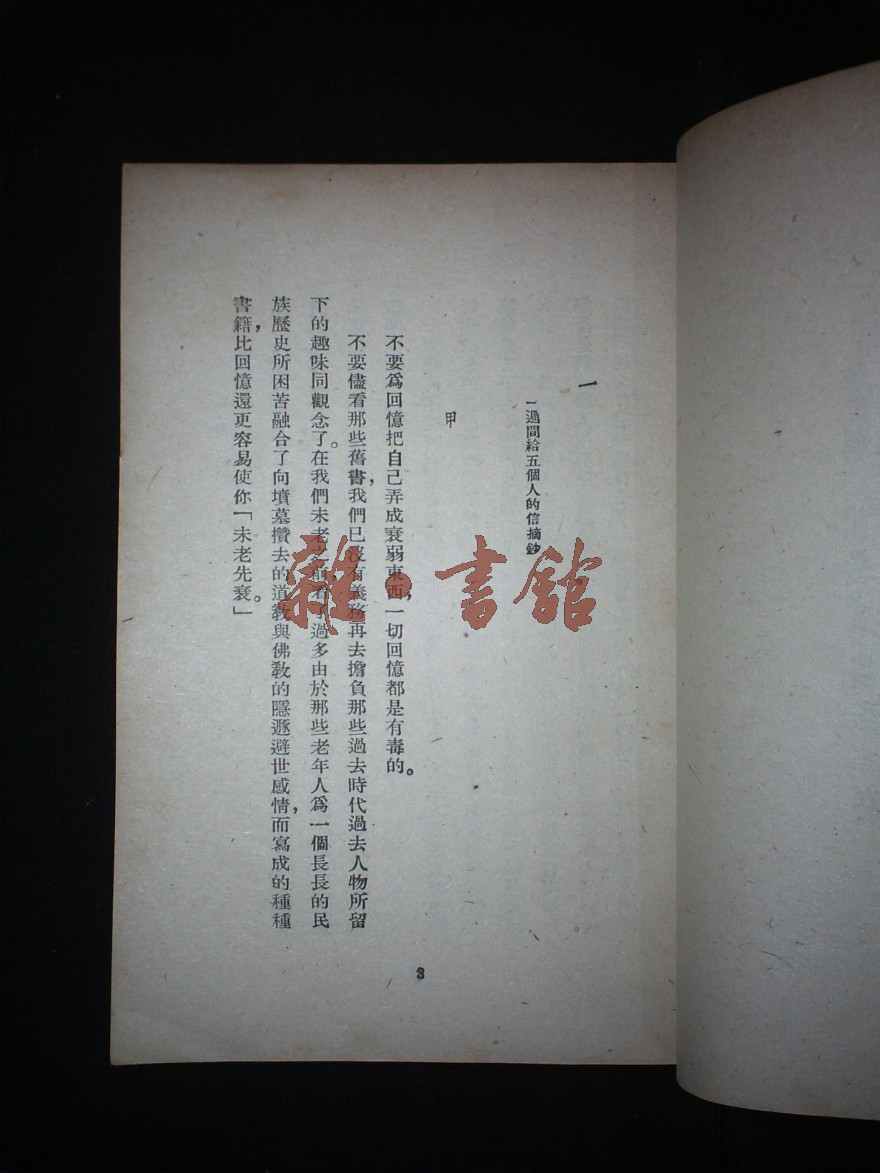 一
一週間給五個人的信摘鈔
甲
不要爲回憶把自己弄成衰弱東西,一切回憶都是有毒的。
不要儘看那些舊書,我們已沒有義務再去擔負那些過去時代過去人物所留
下的趣味同觀念了。在我們未老之前看了過多由於那些老年人爲一個長長的民
族歷史所困苦融合了向墳墓攢去的道教與佛教的隱遯避世感情,而寫成的種種
書籍,比回憶還更容易使你「未老先衰。」
3
雜·書館